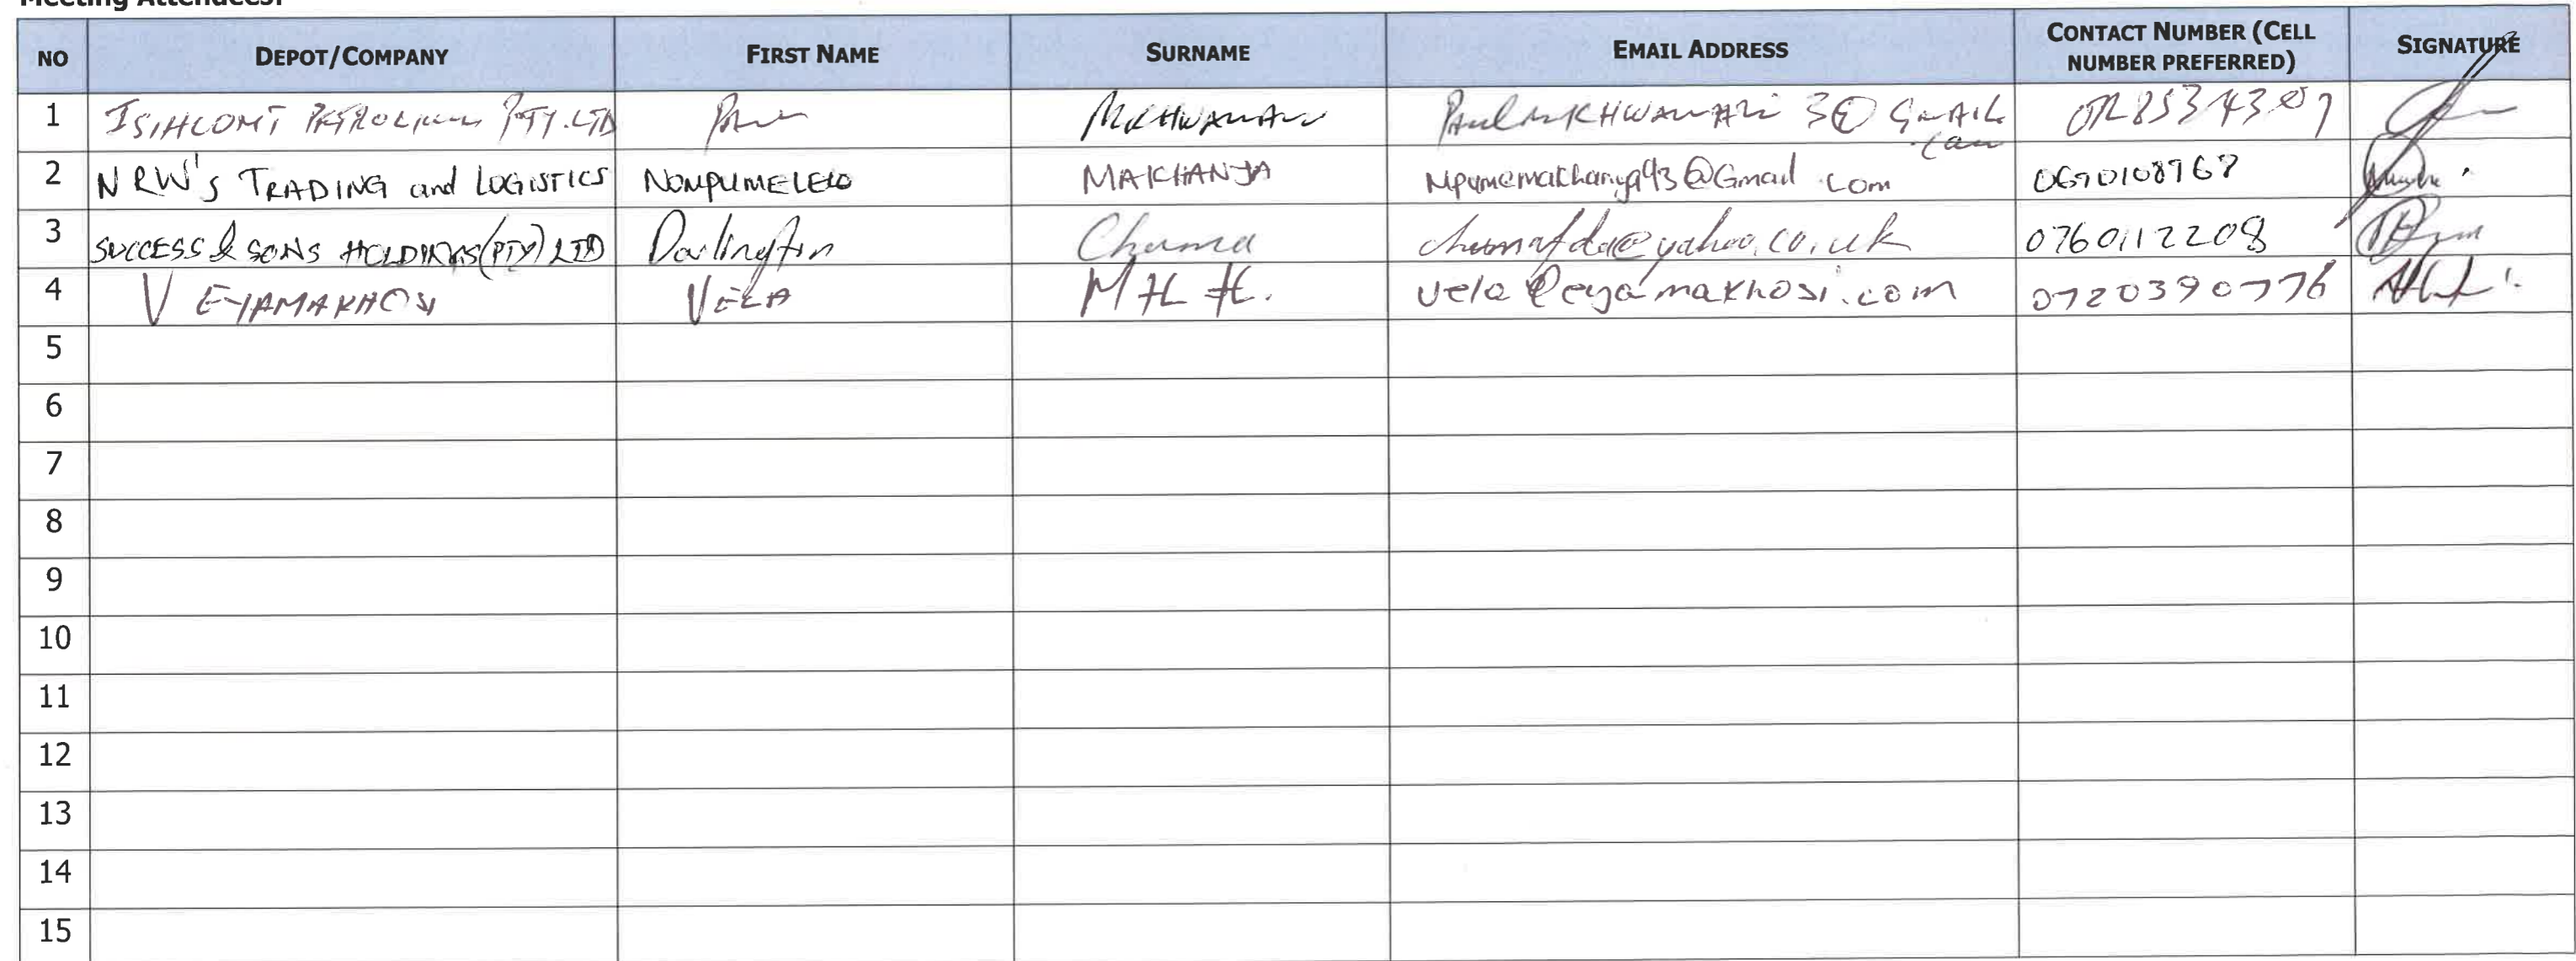 Meeting Attendees:
NO DEPOT/COMPANY FIRST NAME SURNAME EMAIL ADDRESS CONTACT NUMBER (CELL NUMBER PREFERRED) SIGNATURE
1 ISIHLOMI PETROLIUM PTY.LTD Paul MKHWANAZI PaulMKHWANAZi 3@ GMAIL .com
2 NRW's TRADING and LOGISTICS NOMPUMELELO MAKHANJA Mpumemakhanya93@Gmail.com
3 SUCCESS & SONS HOLDINGS(PTY) LTD Darlington Chuma @yahoo.co.uk 0760112208
4 V EYAMAKHOSI VELA vela@eyamakhosi.com 0720390776
5
6
7
8
9
10
11
12
13
14
15